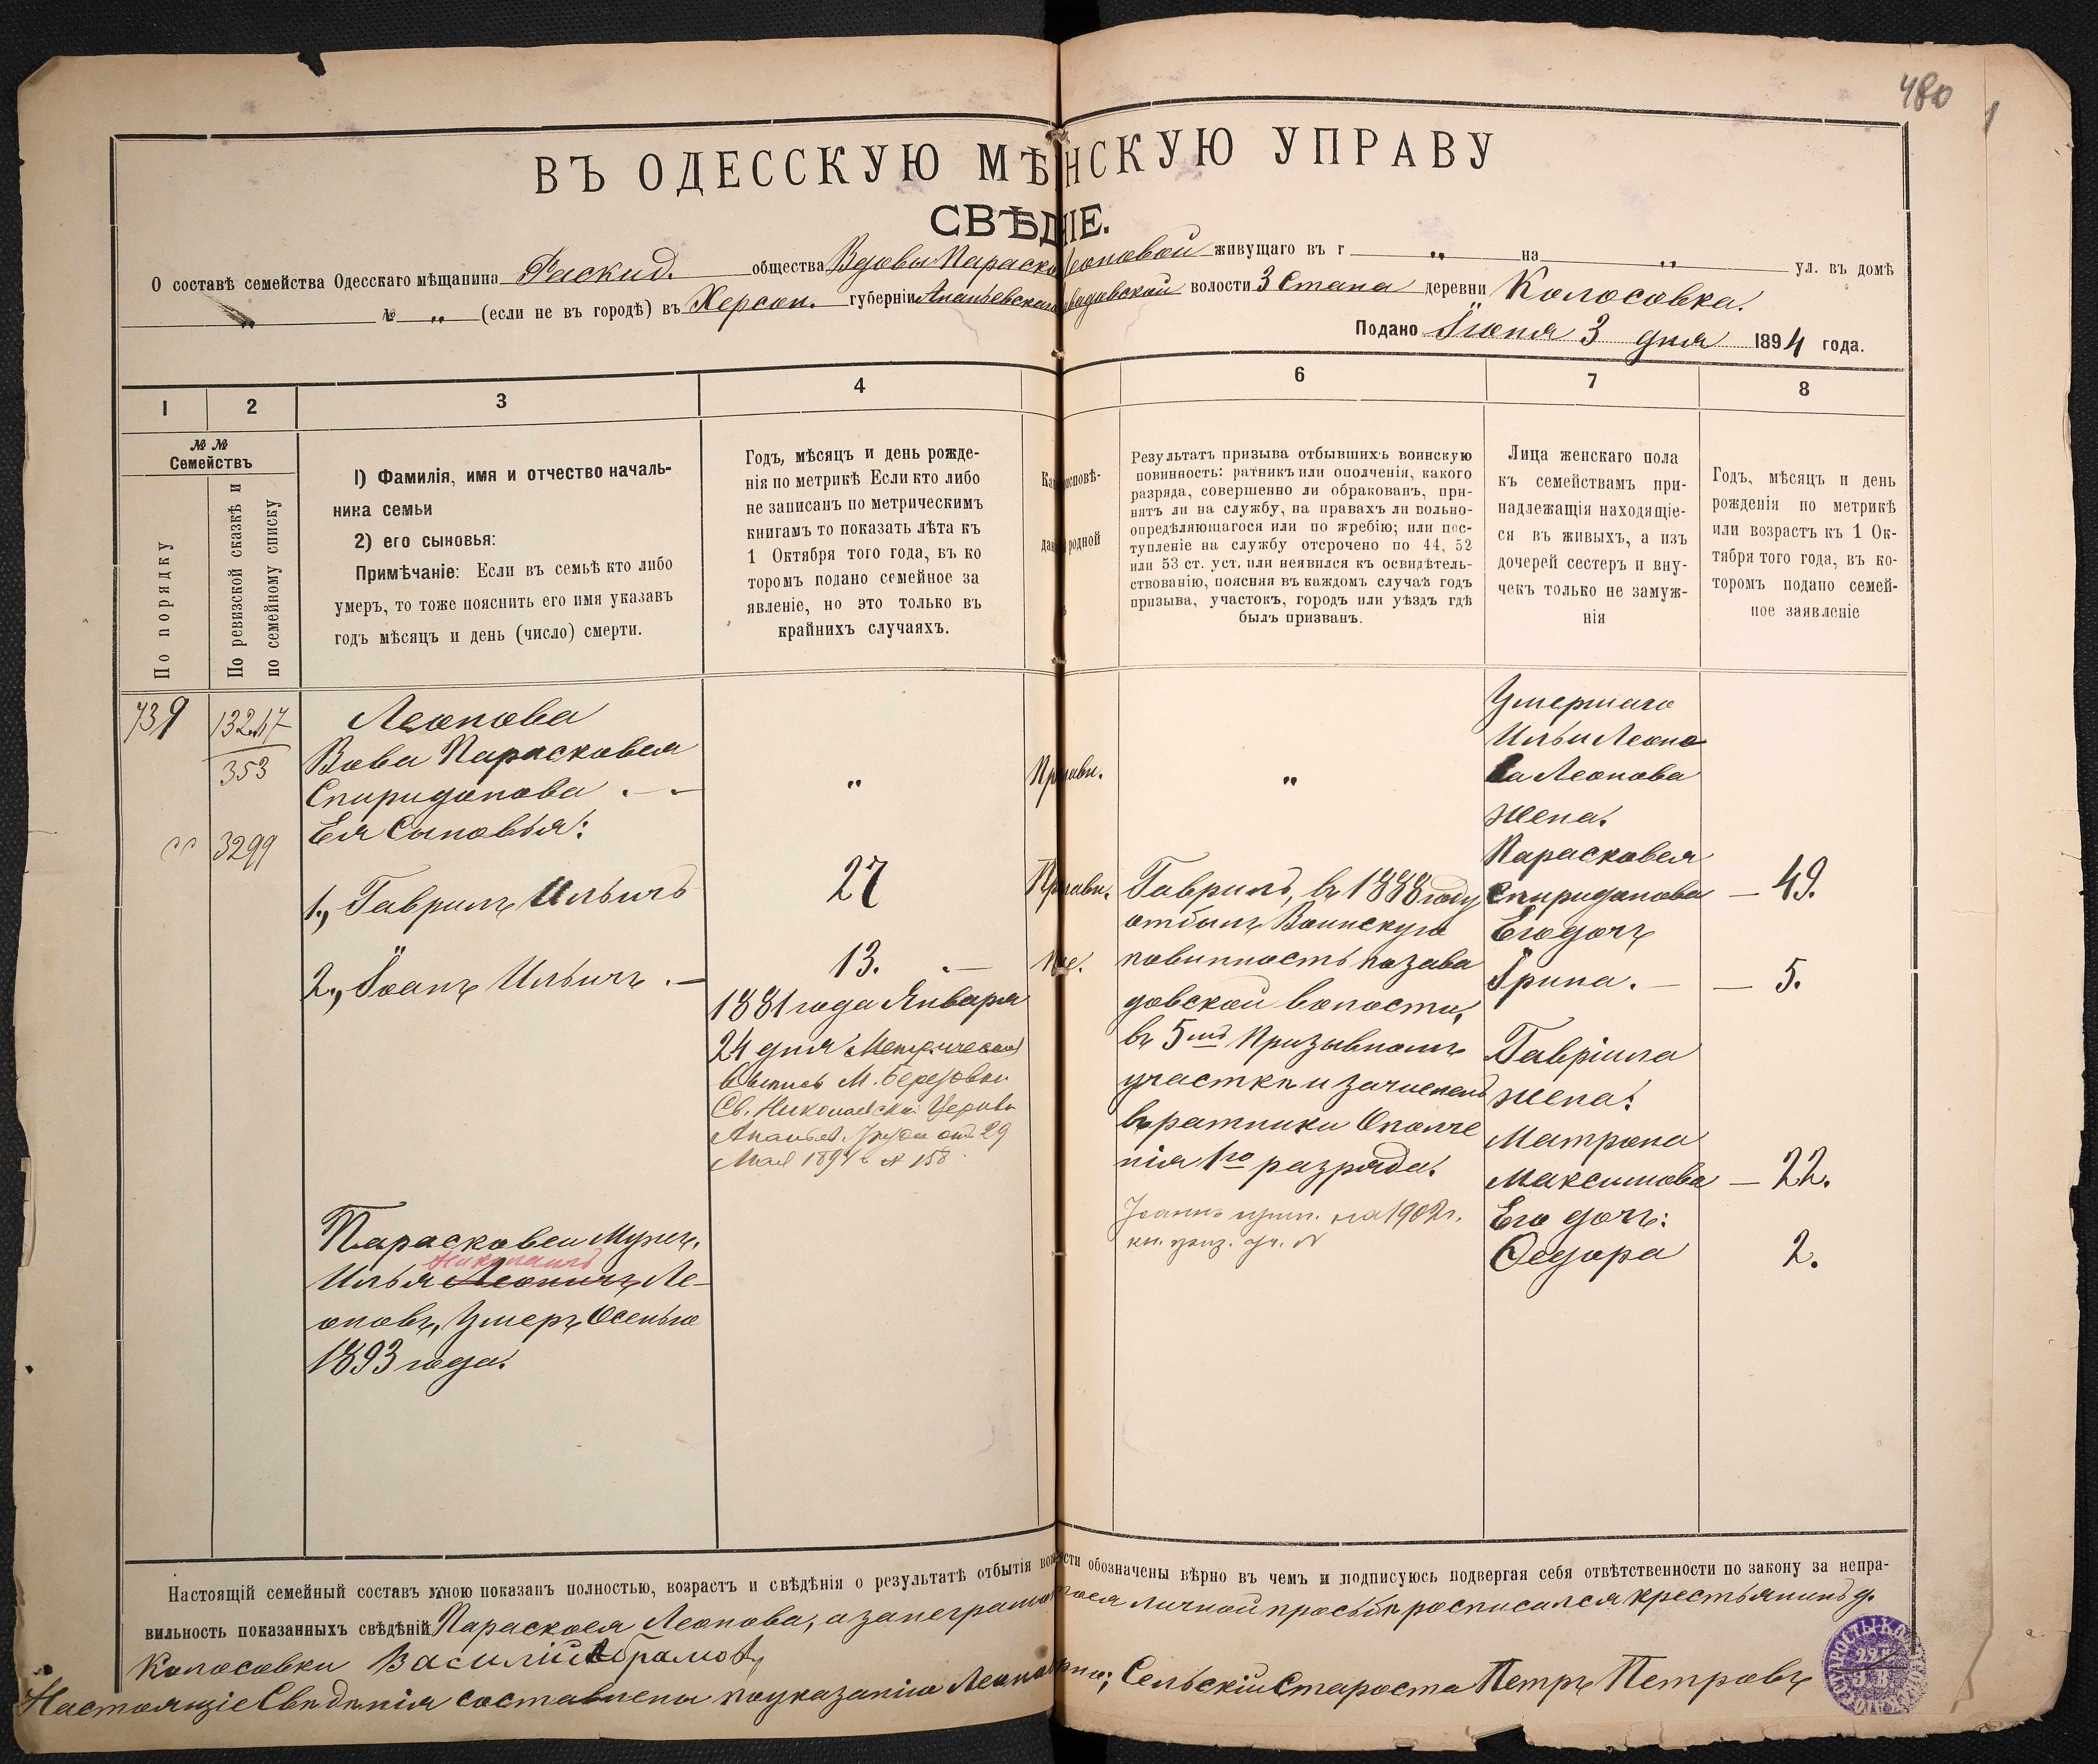 480
ВЪ ОДЕССКУЮ МѢНСКУЮ УПРАВУ
СВѢДНІЕ.
О составѣ семейства Одесскаго мѣщанина Раскид. общества Вдовы Параско Леоновой живущаго въ г „ на „ ул. въ домѣ
„ № „ (если не въ городѣ) въ Херсон. губерніи Ананьевскаго волости 3 Стана деревни Колосовка.
Подано Іюня 3 дня 1894 года.
1 2 3 4 6 7 8
№ №
Семействъ
По порядку
По ревизской сказкѣ и
по семейному списку
1) Фамилія, имя и отчество началь-
ника семьи
2) его сыновья:
Примѣчаніе: Если въ семьѣ кто либо
умеръ, то тоже пояснить его имя указавъ
годъ мѣсяцъ и день (число) смерти.
Годъ, мѣсяцъ и день рожде-
нія по метрикѣ Если кто либо
не записанъ по метрическимъ
книгамъ то показать лѣта къ
1 Октября того года, въ ко
торомъ подано семейное за
явленіе, но это только въ
крайнихъ случаяхъ.
Результатъ призыва отбывшихъ воинскую
повинность: ратникъ или ополченія, какого
разряда, совершенно ли обракованъ, при-
нятъ ли на службу, на правахъ ли вольно-
опредѣляющагося или по жребію; или пос-
тупленіе на службу отсрочено по 44, 52
или 53 ст. уст. или неявился къ освидѣтель-
ствованію, поясняя въ каждомъ случаѣ годъ
призыва, участокъ, городъ или уѣздъ гдѣ
былъ призванъ.
Лица женскаго пола
къ семействамъ при-
надлежащія находящіе-
ся въ живыхъ, а изъ
дочерей сестеръ и вну-
чекъ только не замуж-
нія
Годъ, мѣсяцъ и день
рожденія по метрикѣ
или возрастъ къ 1 Ок-
тября того года, въ ко-
торомъ подано семей-
ное заявленіе
739
13247
353
3299
Леонова
Вова Парасковея
Спиридонова . —
Ея Сыновья:
1., Гаврилъ Ильичъ
2., Іоанъ Ильичъ . —
Парасковеи Мужъ,
Николаичъ
Илья Леоничъ Ле-
оновъ, Умеръ Осенью
1893 года.
„
27
13. . —
1881 года Января
24 дня Метрическая
М. Березовки
Св. Николаевской Церкви
Ананьев. уѣзда отъ 29
Мая 1894 г № 158
„
Гаврилъ, въ 1888 году
отбылъ Воинскую
повинность по Зава
довской волости,
въ 5мъ Призывномъ
участкѣ и зачисленъ
въ ратники Ополче
нія 1го разряда.
Іоаннъ на 1902 г.
Умершаго
Ильи Леоно
ва Леонова
жена:
Парасковея
Спиридонова — 49.
Его дочь
Ірина. — — 5.
Гавріила
жена:
Матрона
Максимова — 22.
Его дочь:
Ѳедора 2.
Настоящій семейный составъ мною показанъ полностью, возрастъ и свѣдѣнія о результатѣ отбытія обозначены вѣрно въ чемъ и подписуюсь подвергая себя отвѣтственности по закону за непра-
вильность показанныхъ свѣдѣній Параскоея Леонова, а за неграмот ея личной просьбѣ росписался крестьянинъ д.
Колосовки Василій Абрамов
Настоящіе Свѣдѣнія составлены по указанію Сельскій Староста Петръ Петровъ